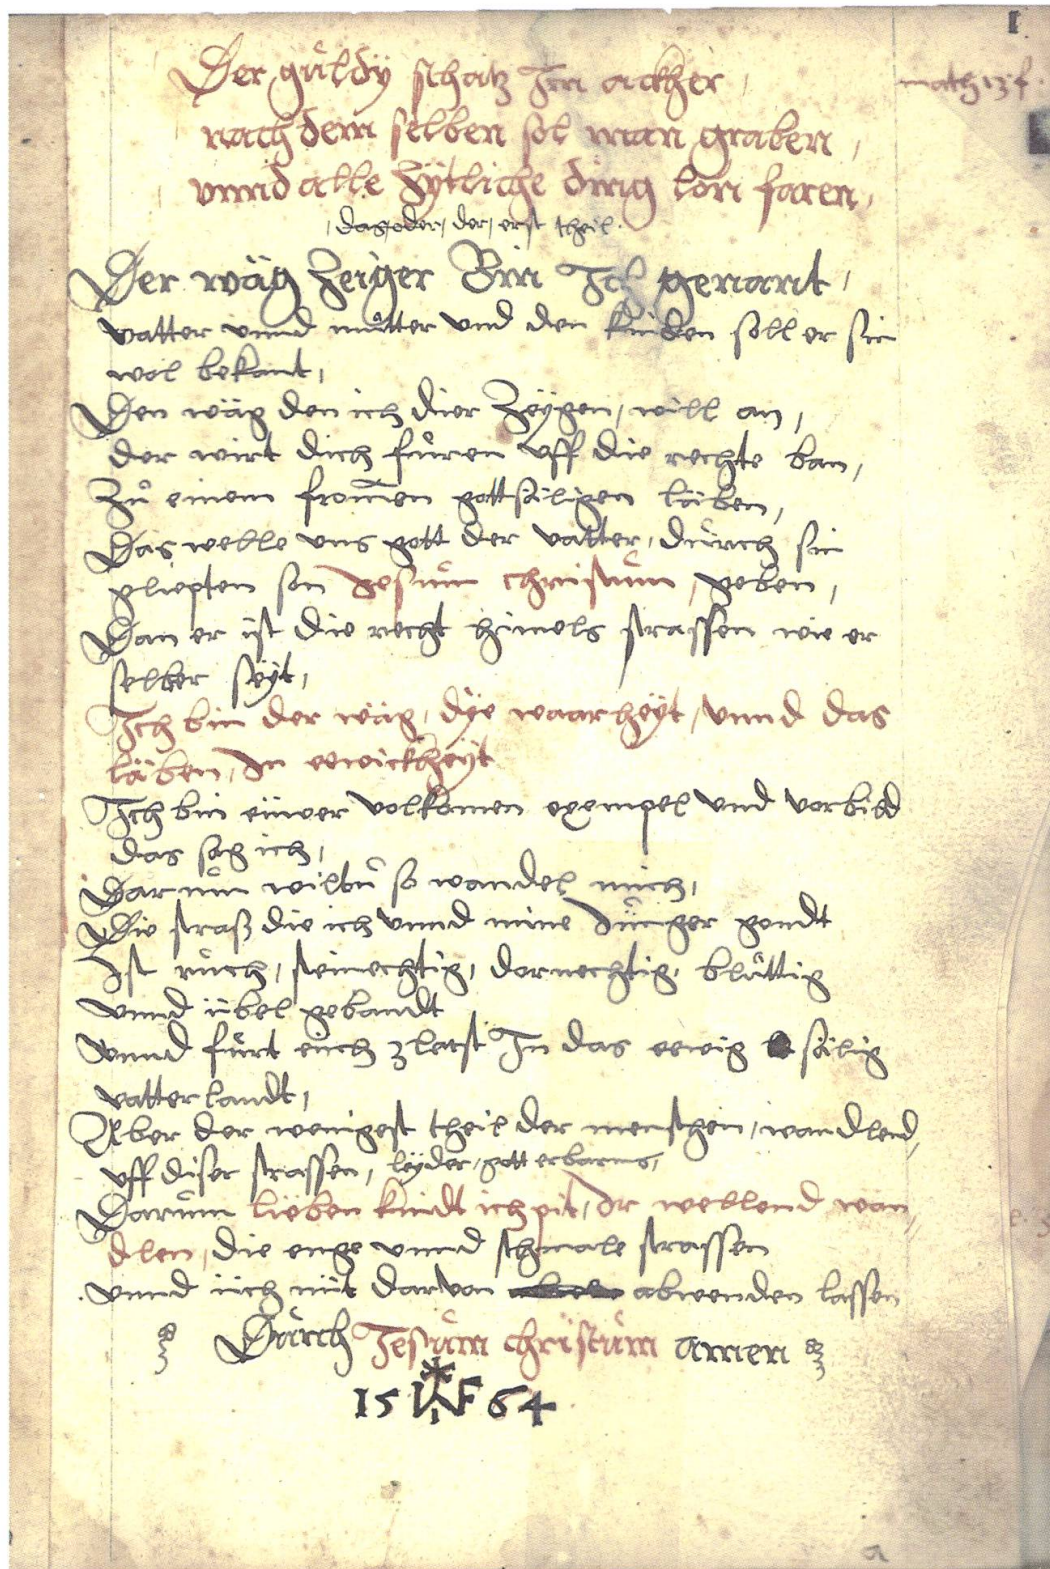 I
Der gůldÿ schatz Im ackher,
math 13 f.
nach dem selben sol man graben,
vnnd alle Zÿtliche ding lon faren,
das, oder, der, erst theil.
Der wäg Zeiger Bin Ich genant,
vatter vnnd můtter vnd den kinden soll er sin
wol bekant,
Den wäg den ich dier Zeÿgen, will an,
der wirt dich fůren vff die rechte ban,
Zů einem fromen gottsäligen läben,
Das welle vns gott der vatter, durch sin
gliepten son Jesům christům, geben,
Dan er ist die recht himels strassen wie er
selber seÿt,
Ich bin der wäg, dÿe waarheÿt, vnnd das
läben, In eewickheÿt
Ich bin eüwer volkomen exempel vnd vorbild
das sag ich,
Darům wiltů so wandel mich,
Die straß die ich vnnd mine Jünger gendt
Ist růch, steinechtig, dornechtig, blůttig
vnnd übel gebandt
Vnnd fůrt eüch zletst In das eewig sälig
vatterlandt,
Aber der wenigest theil der menschen, wandlend,
vff diser strassen, leÿder, gott erbarms,
Darům lieben kindt ich pit, Ir wellend wan
dlen, die enge vnnd schmale strassen
vnnd üch nüt darvon abwenden lassen
Dürch Jesům christům amen
15 VF 64
a